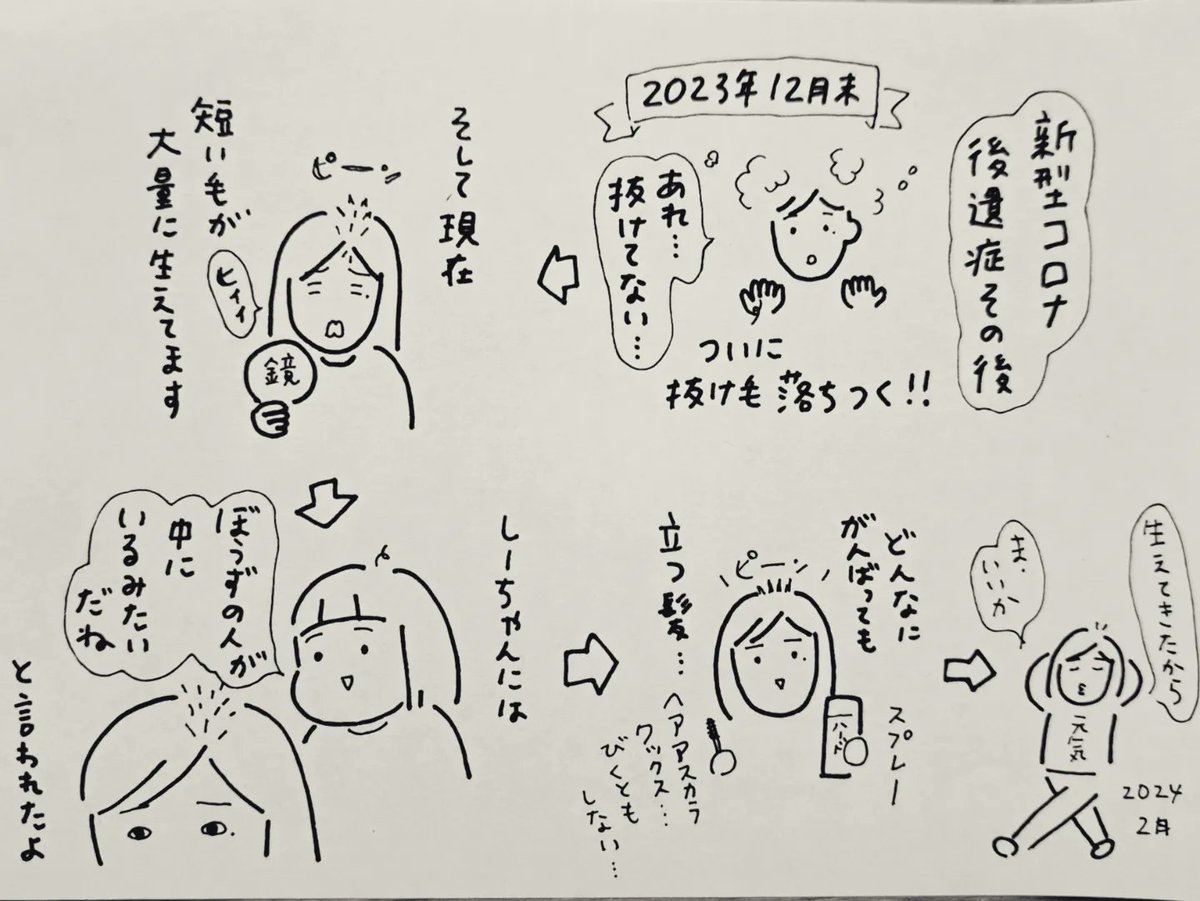 新型コロナ
後遺症その後
2023年12月末
あれ…
抜けてない…
ついに
抜け毛落ちつく!!
そして現在
ピーン
短い毛が
大量に生えてます
ヒィィ
鏡
しーちゃんには
ぼうずの人が
中に
いるみたい
だね
と言われたよ
どんなに
がんばっても
ピーン
立つ髪…
スプレー
ハード
ヘアマスカラ
ワックス…
びくとも
しない…
生えてきたから
ま、
いいか
元気
2024
2月